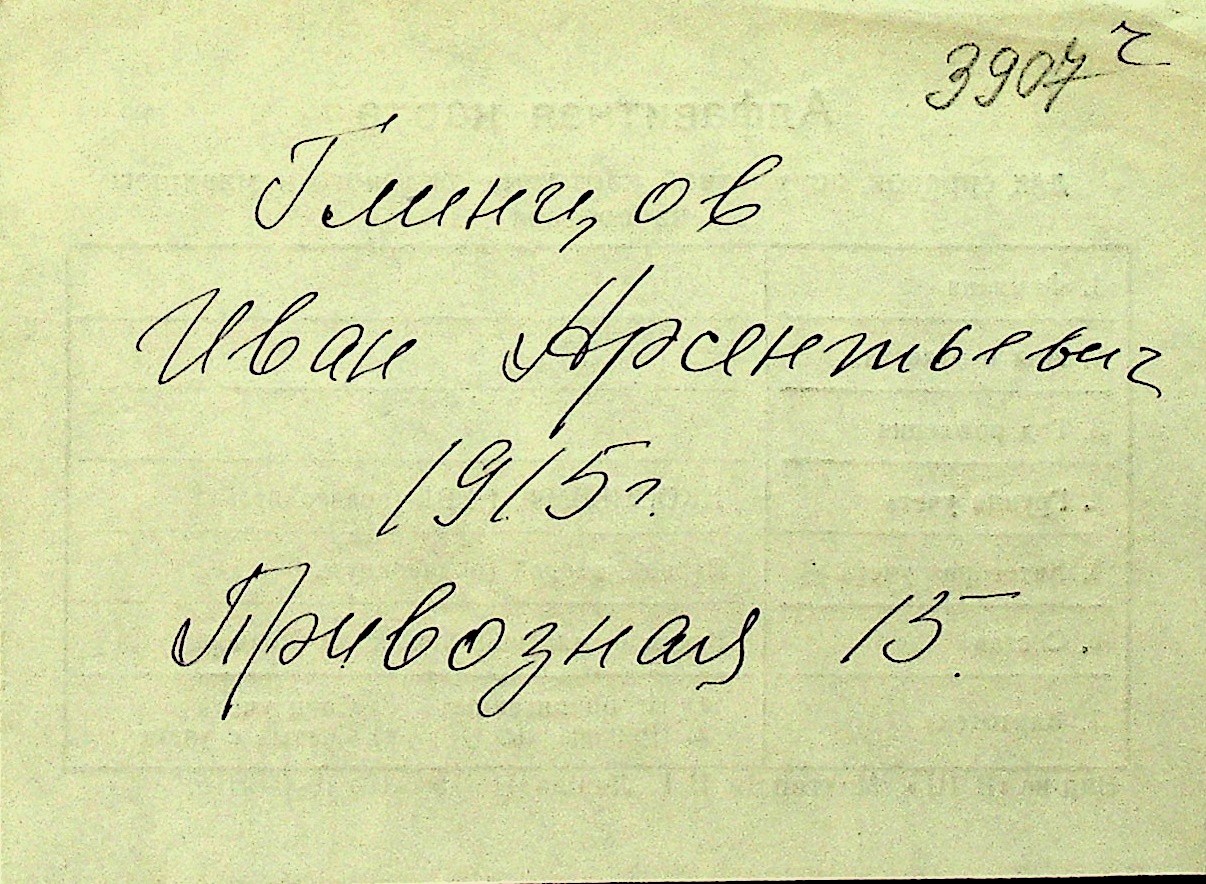 3907 ч
Глинцов
Иван Арсентьевич
1915 г.
Привозная 15.